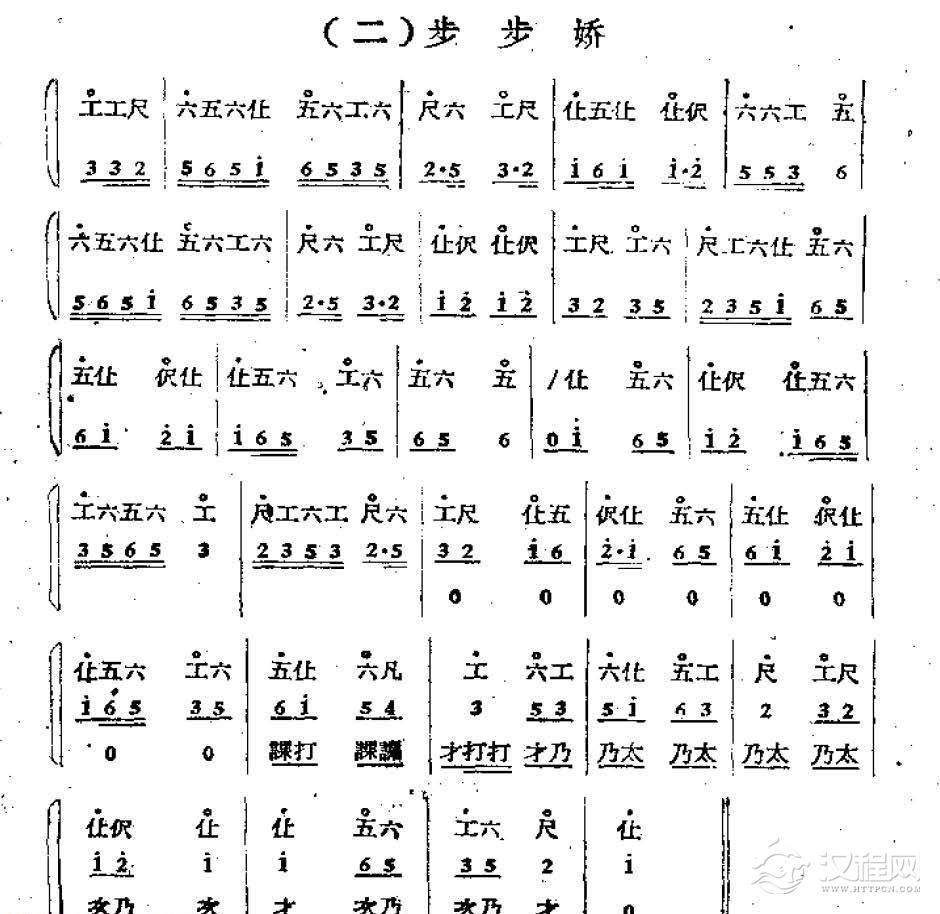 （二）步 步 娇
工工尺 六五六仩 五六工六 尺六 工尺 仩五仩 仩伬 六六工 五
3 3 2 5 6 5 i 6 5 3 5 2·5 3·2 i 6 i i·2 5 5 3 6
六五六仩 五六工六 尺六 工尺 仩伬 仩伬 工尺 工六 尺工六仩 五六
5 6 5 i 6 5 3 5 2·5 3·2 i 2 i 2 3 2 3 5 2 3 5 i 6 5
五仩 伬仩 仩五六 工六 五六 五 /仩 五六 仩伬 仩五六
6 i 2 i i 6 5 3 5 6 5 6 0 i 6 5 i 2 i 6 5
工六五六 工 尺工六工 尺六 工尺 仩五 伬仩 五六 五仩 伬仩
3 5 6 5 3 2 3 5 3 2·5 3 2 i 6 2·i 6 5 6 i 2 i
0 0 0 0 0 0
仩五六 工六 五仩 六凡 工 六工 六仩 五工 尺 工尺
i 6 5 3 5 6 i 5 4 3 5 3 5 i 6 3 2 3 2
0 0 課打 課 才打打 才乃 乃太 乃太 乃太 乃太
仩伬 仩 仩 五六 工六 尺 仩
i 2 i i 6 5 3 5 2 i
次乃 次 才 次乃 次乃 才 0
汉程网
WWW.HTTPCN.COM